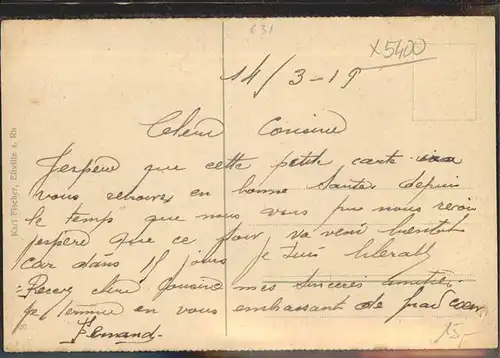 631
x5400
14/3-19
Chère Cousine
J'espère que cette petite carte
vous retrouve en bonne Santée depuis
le temps que nous nous revoir
jespère que ce jour va venir bientot
car dans 15 jours je suis liberable
Recevez chère Cousine mes sinceres amities
je termine en vous embrassant de grand cœur
Fernand.
15,-
Karl Fischer, Eltville a. Rh